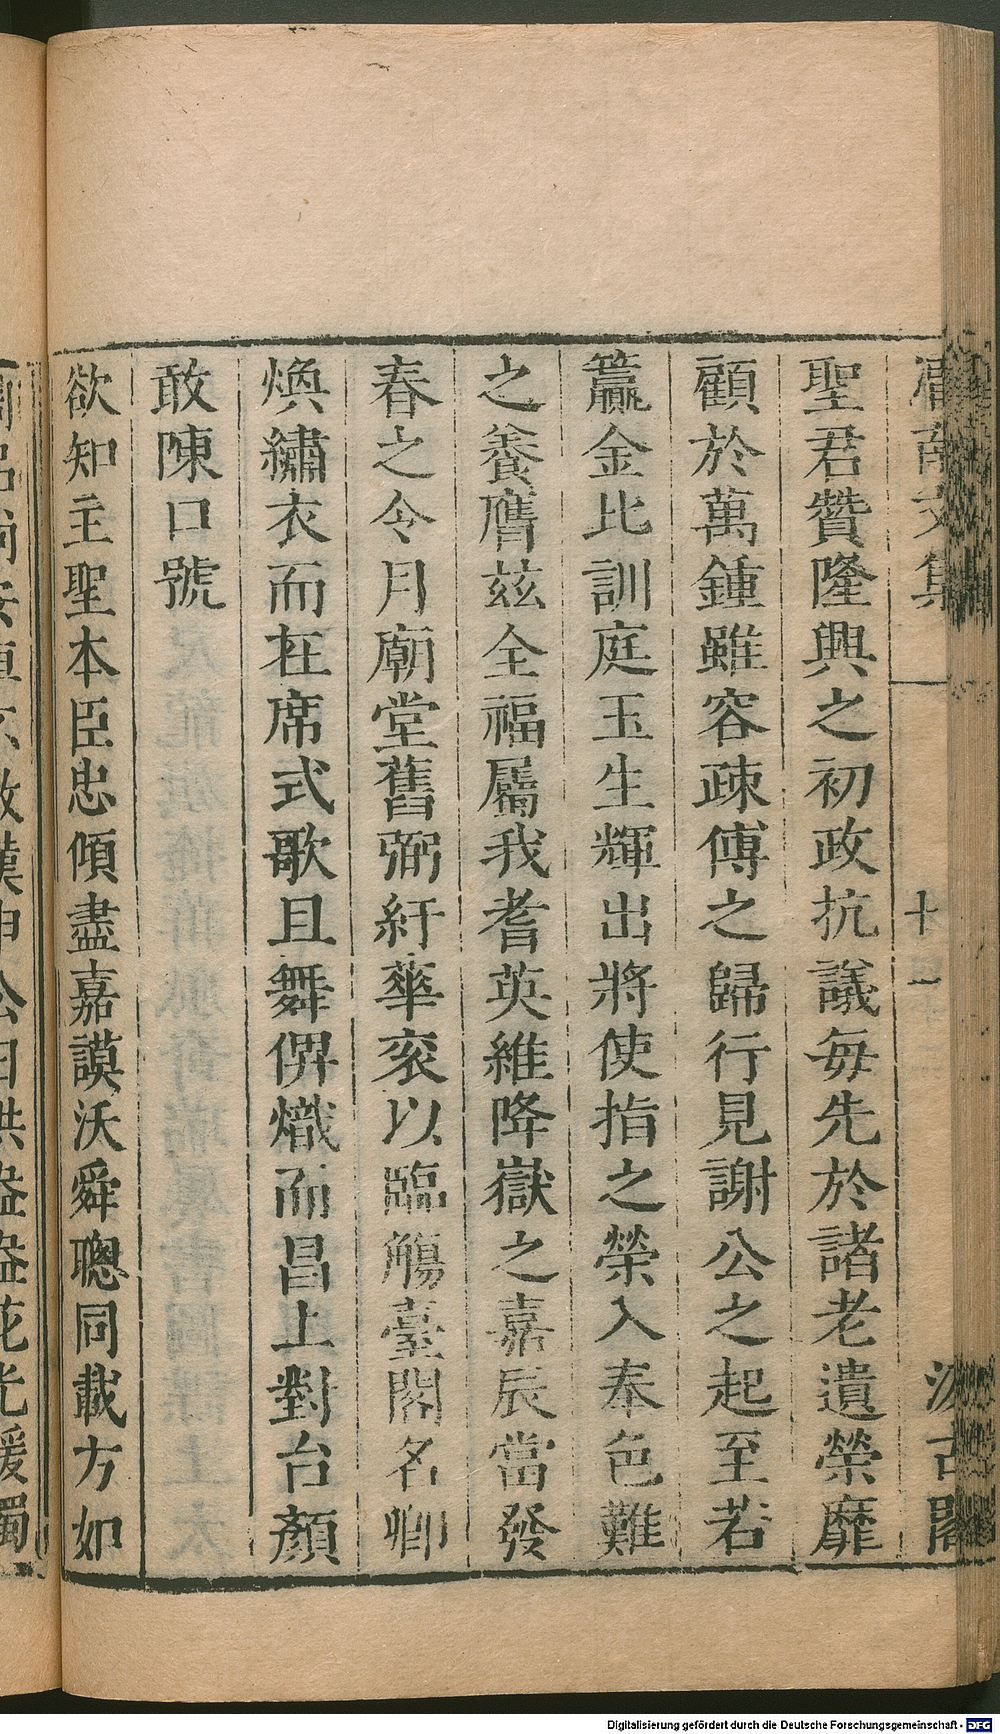 渭南文集 十 汲古閣
聖君贊隆興之初政抗議每先於諸老遺榮靡
顧於萬鍾雖容疎傅之歸行見謝公之起至若
籝金比訓庭玉生輝出將使指之榮入奉色難
之養膺茲全福屬我耆英維降嶽之嘉辰當發
春之令月廟堂舊弼紆華衮以臨觴臺閣名卿
煥繡衣而在席式歌且舞俾熾而昌上對台顏
敢陳口號
欲知主聖本臣忠傾盡嘉謨沃舜聰同載方如
Digitalisierung gefördert durch die Deutsche Forschungsgemeinschaft - DFG